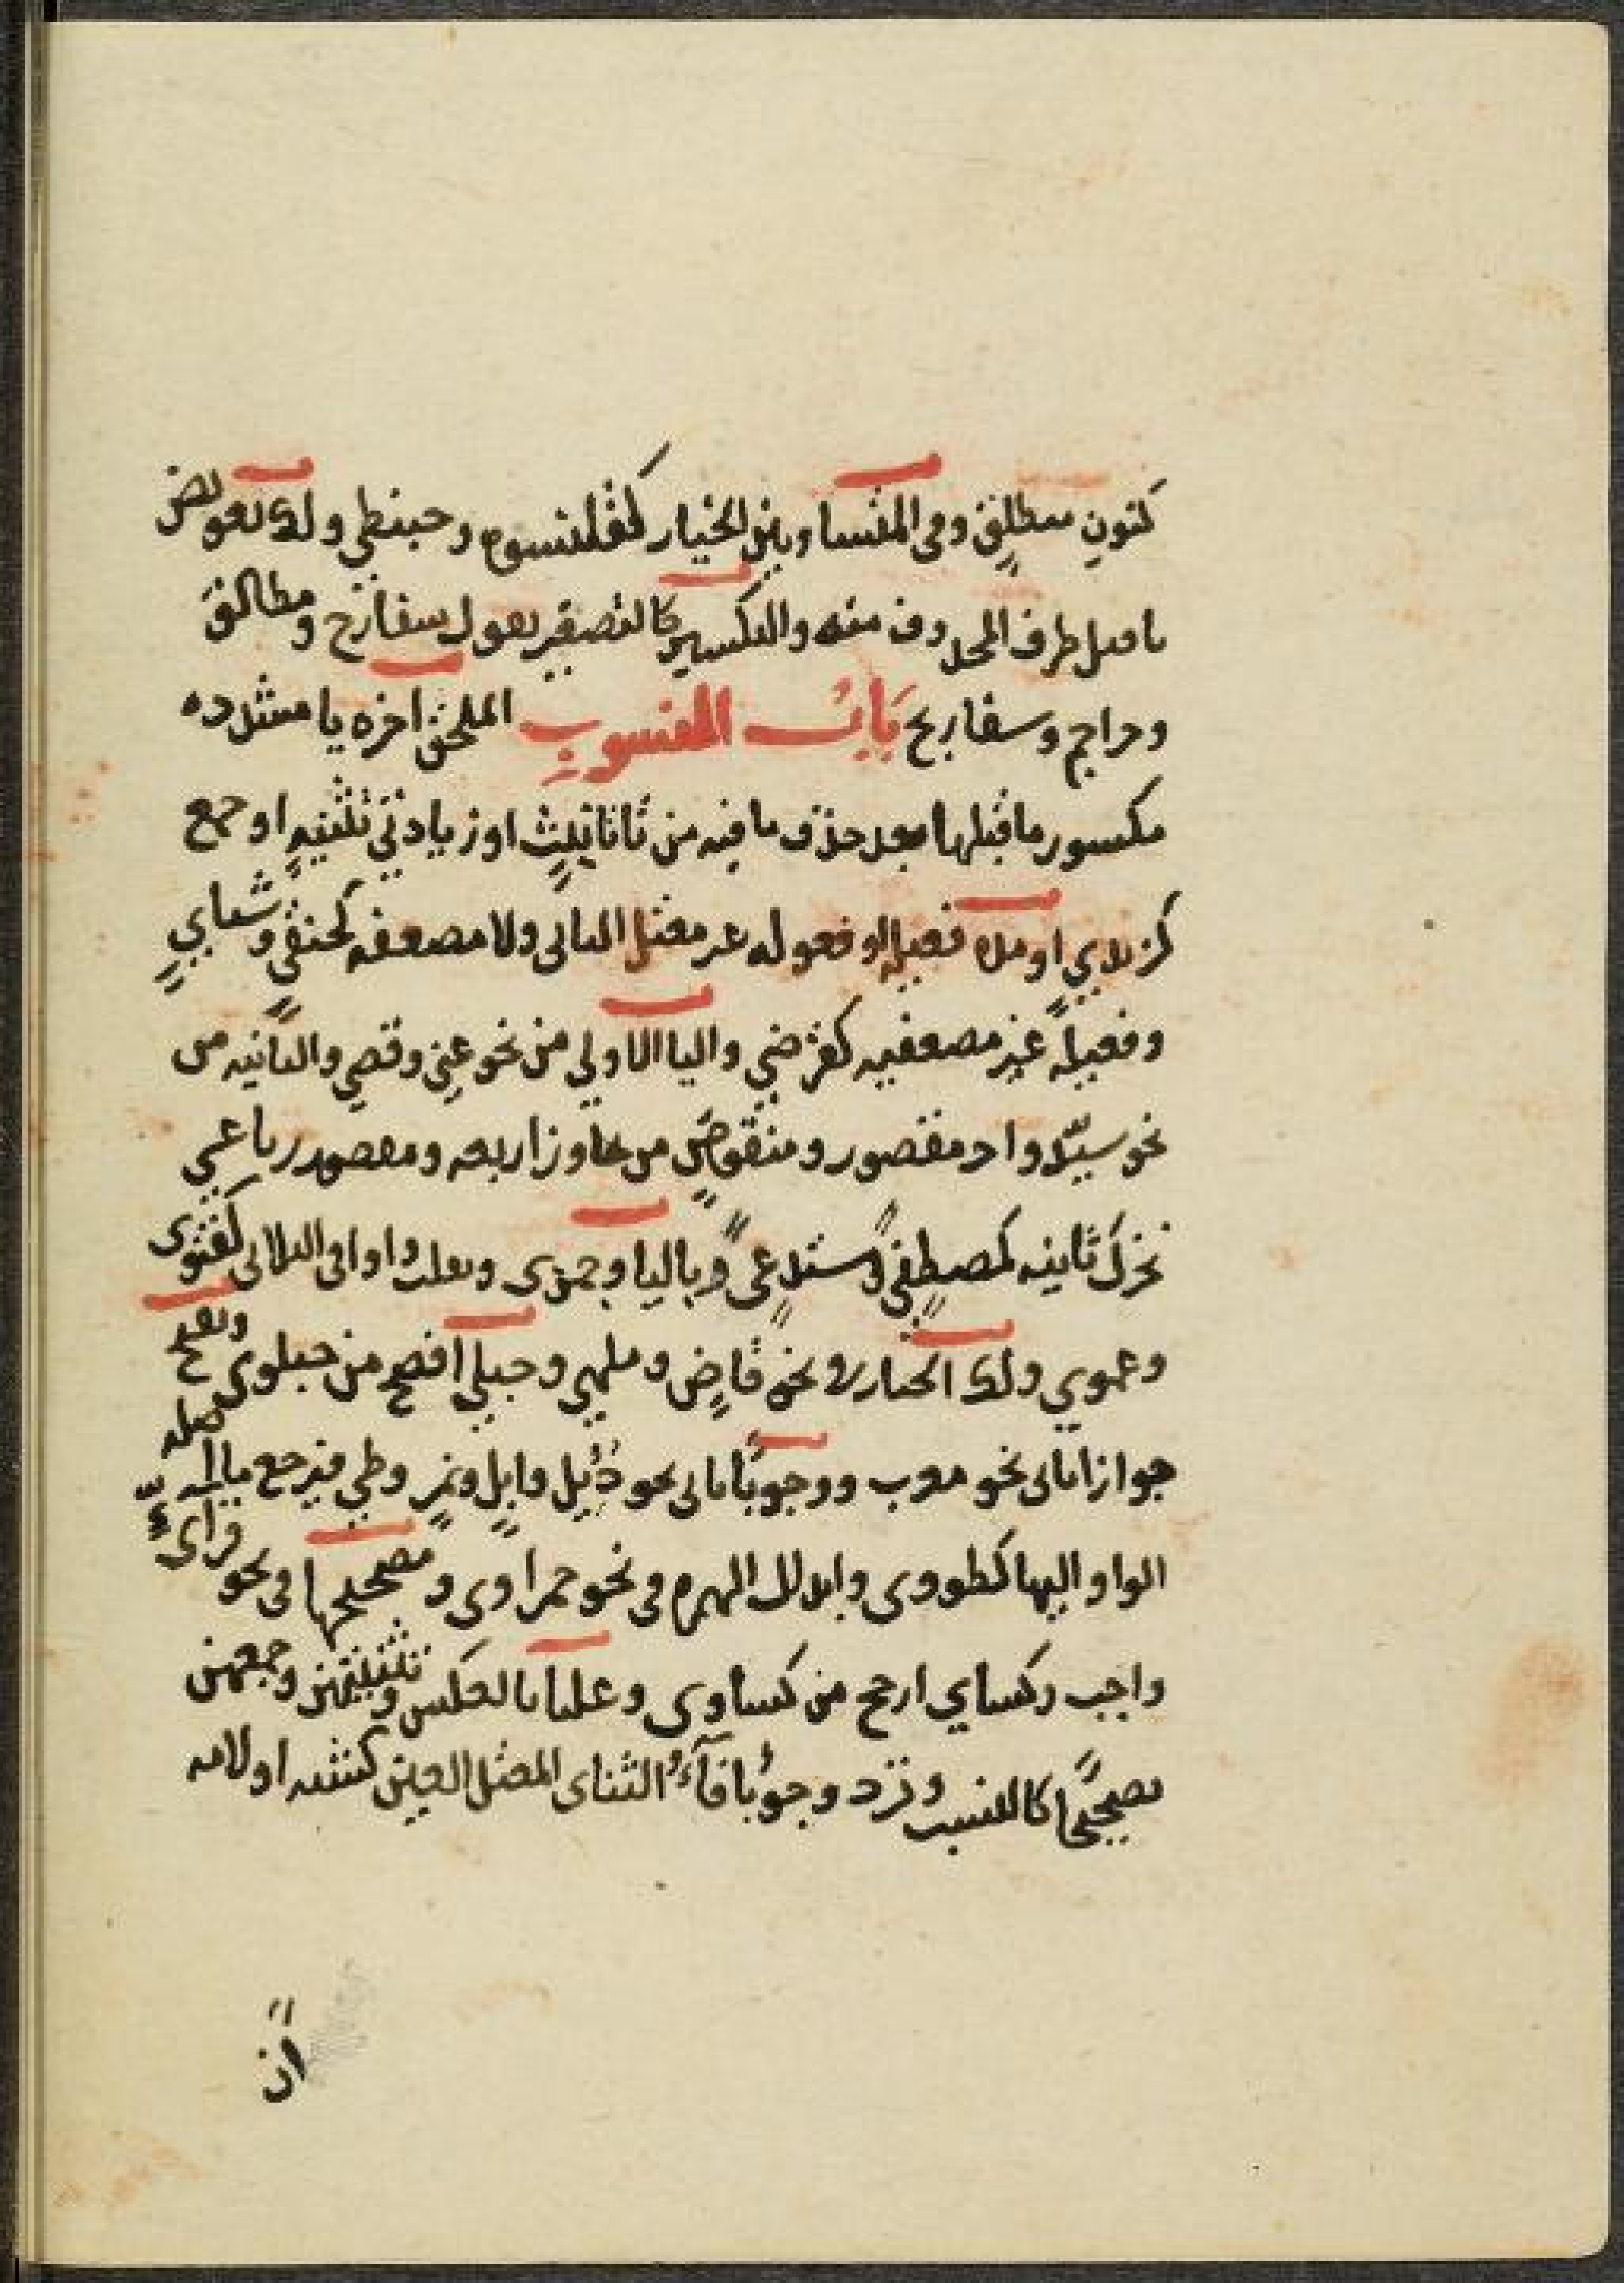 كنون منطلق وفى المتساويين الخيار كقلنسوه وحبنطى ولك تعويض
يا قبل طرف المحذوف منه والتكسير كالتصغير تقول سفارج ومطالق
وحراجم وسفاريج بَابُ المنسوبِ الملحق اخره يا مشدده
مكسور ما قبلها بعد حذف ما فيه من تا تانيثٍ او زيادتي تثنيهٍ او جمع
كزيدي او من فعيله او فعوله غير معتل الثانى ولا مضعفه كحنفى وشنايٍ
وفعيلةً غير مضعفيه كفرضي واليا الاولي من نحو غني وقصي والثانيه من
نحو سيّد واخر مقصور ومنقوصٍ من متجاوز اربعه ومقصور رباعي
تحرك ثانيه كمصطفىٍ ومستدعىٍ وباليا وجمزى وتقلب واوا فى الثلاثى كفتوى
وعموي ولك الخيار فى نحو قاضٍ وملهي وحبلي افصح من حبلوى وتفتح
جوازا ثانى نحو يثرب ووجوبًا ثانى نحو دُئِل وابِلٍ ونمرٍ وطي فيرجع يا اصله
الواو اليها كطووى وابدل الهمزه فى نحو حمراوى وتصحيحها فى نحو قراىّ
واجب وكساي ارجح من كساوى وعلبا بالعكس وتثنيتهن وجمعهن
تصحيحًا كالنسب وترد وجوبًا فآءُ الثناى المعتل العين كشيه او لامه
ان